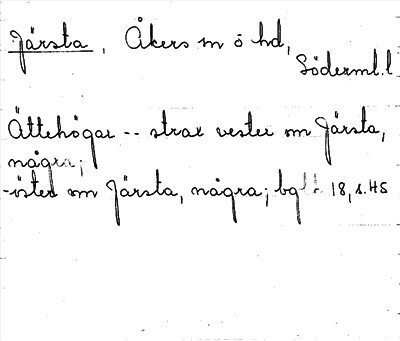 Järsta, Åkers m ö hd,
Söderml. l
Ättehögar -- strax vester om Järsta,
några;
-öster om Järsta, några; bg 18, s. 45